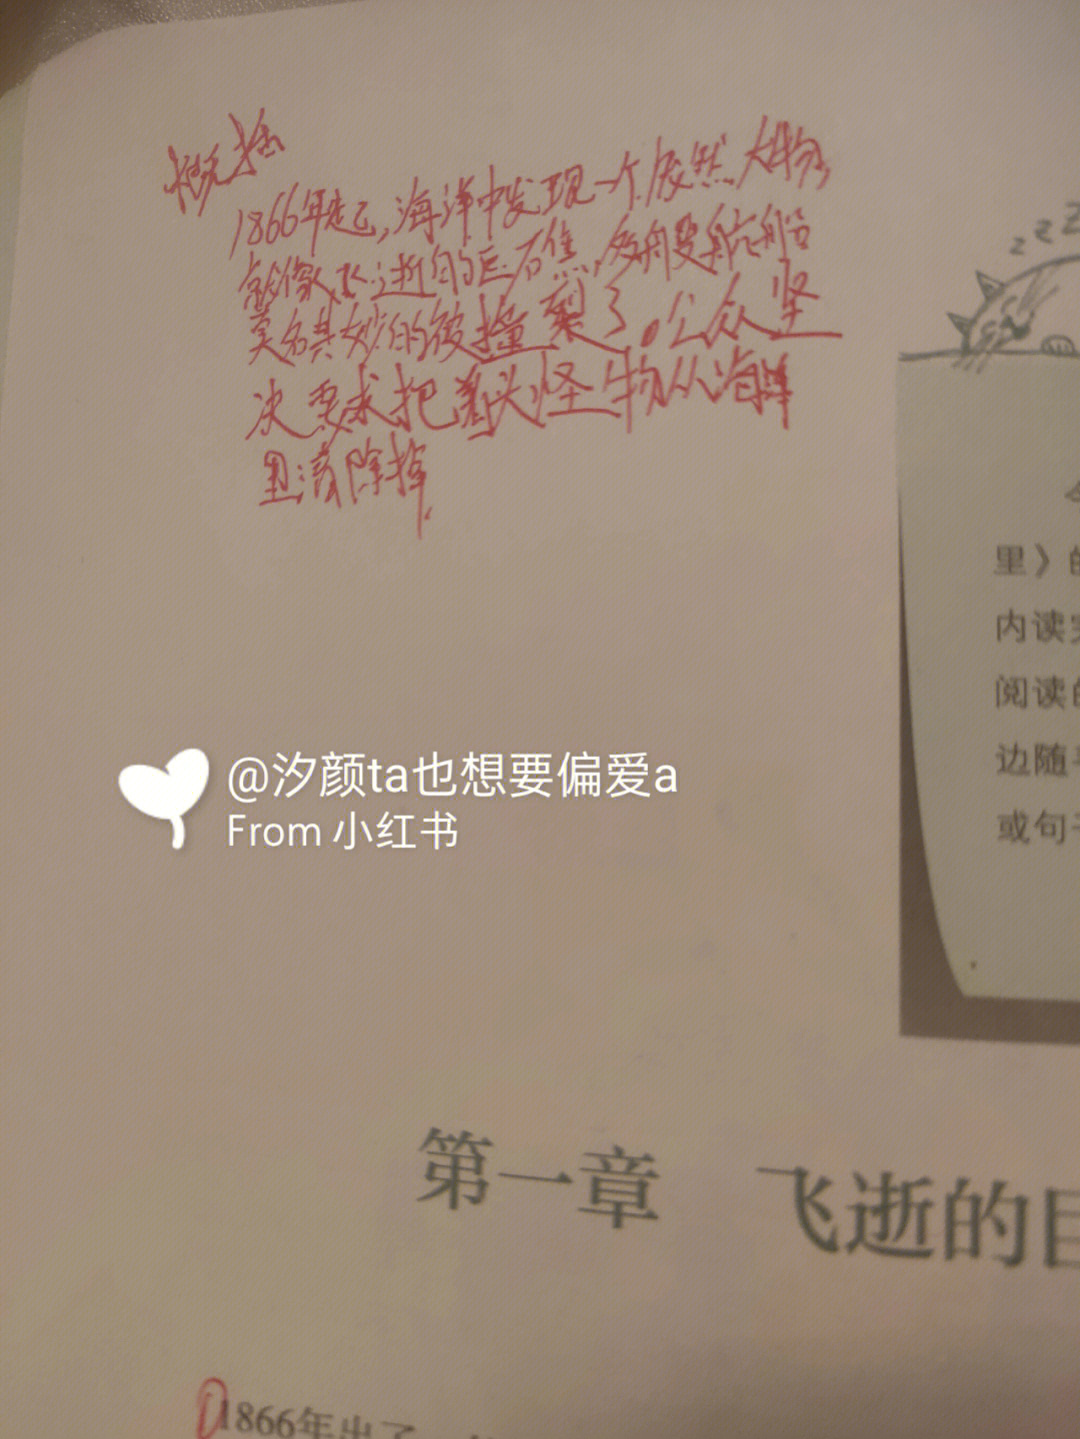 概括
1866年起,海洋中发现一个庞然大物,
就像飞逝的巨石焦,多舟曼航船
莫名其妙的被撞裂了。公众坚
决要求把着头怪物从海洋
里清除掉.
z z Z
里》的
内读完
阅读的
边随手
或句子
@汐颜ta也想要偏爱a
From 小红书
第一章 飞逝的巨
①1866年出了